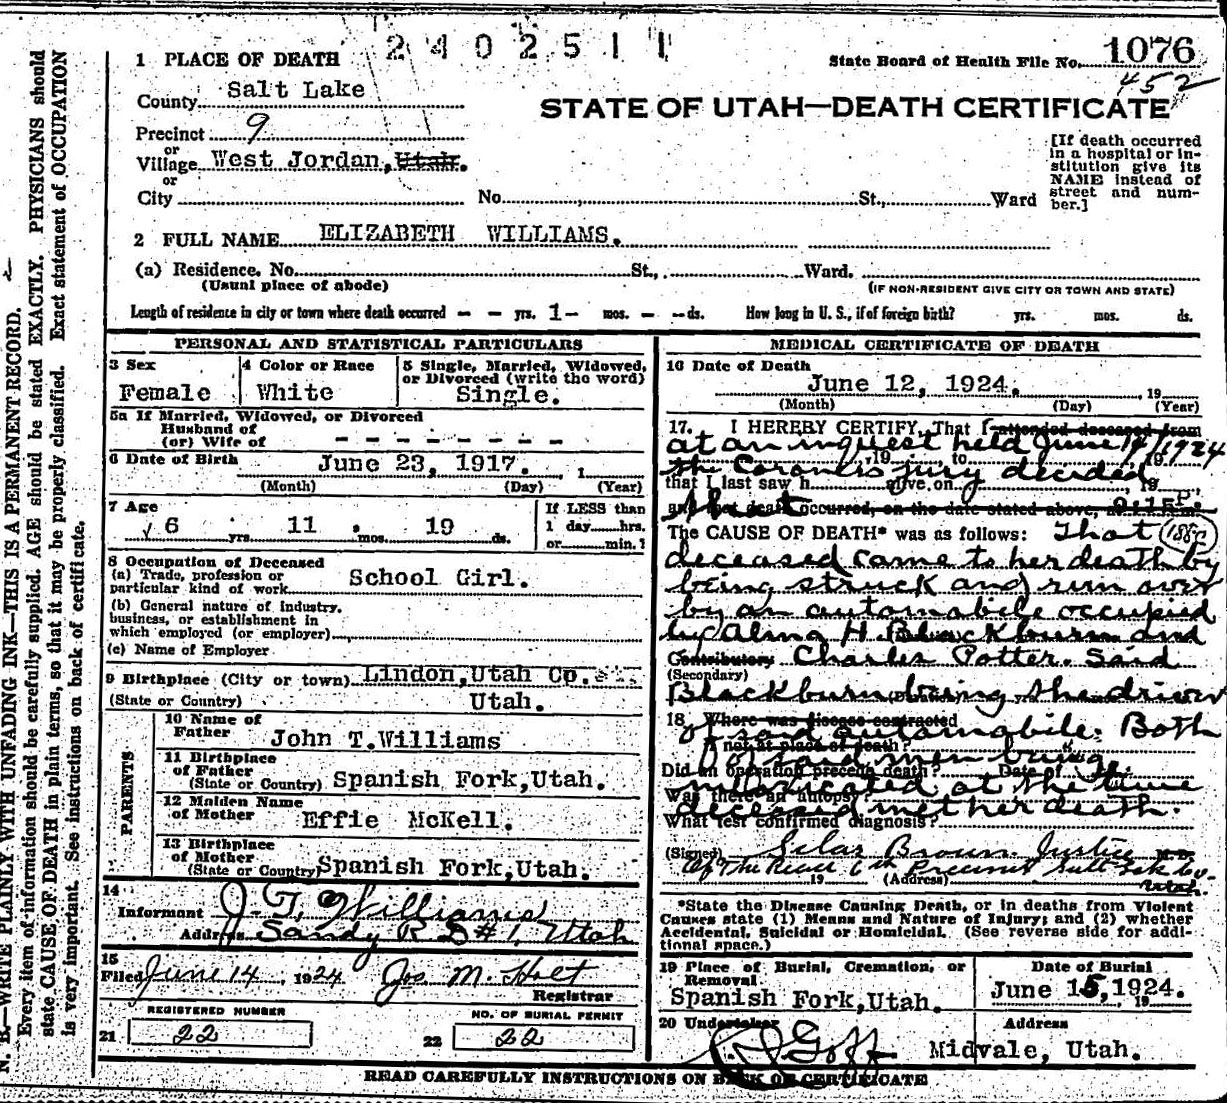 2402511
1 PLACE OF DEATH
State Board of Health File No. 1076
452
County Salt Lake
STATE OF UTAH—DEATH CERTIFICATE
Precinct 9
or
Village West Jordan, Utah.
or
City No. St., Ward
[If death occurred
in a hospital or in-
stitution give its
NAME instead of
street and num-
ber.]
2 FULL NAME ELIZABETH WILLIAMS.
(a) Residence. No. St., Ward.
(Usual place of abode) (IF NON-RESIDENT GIVE CITY OR TOWN AND STATE)
Length of residence in city or town where death occurred - - yrs. 1 - mos. - -- ds. How long in U. S., if of foreign birth? yrs. mos. ds.
PERSONAL AND STATISTICAL PARTICULARS
3 Sex 4 Color or Race 5 Single, Married, Widowed,
or Divorced (write the word)
Female White Single.
5a If Married, Widowed, or Divorced
Husband of
(or) Wife of - - - - - - - -
6 Date of Birth June 23, 1917. 1
(Month) (Day) (Year)
7 Age If LESS than
6 yrs. 11 mos. 19 ds. 1 day hrs.
or min.?
8 Occupation of Deceased
(a) Trade, profession or
particular kind of work School Girl.
(b) General nature of industry,
business, or establishment in
which employed (or employer)
(c) Name of Employer
9 Birthplace (City or town) Lindon, Utah Co.
(State or Country) Utah.
PARENTS
10 Name of
Father John T. Williams
11 Birthplace
of Father
(State or Country) Spanish Fork, Utah.
12 Maiden Name
of Mother Effie McKell.
13 Birthplace
of Mother
(State or Country) Spanish Fork, Utah.
14
Informant J. T. Williams
Address Sandy R D #1, Utah
15
Filed June 14, 1924 Jos. M. Holt
Registrar
REGISTERED NUMBER NO. OF BURIAL PERMIT
21 22 22 22
MEDICAL CERTIFICATE OF DEATH
16 Date of Death
June 12, 1924. 19
(Month) (Day) (Year)
17. I HEREBY CERTIFY, That I attended deceased from
at an inquest held June 14/1924
19 to 19
the Coroner's jury decided
that I last saw h alive on 19
that
and that death occurred, on the date stated above, 9:15 P. m.
The CAUSE OF DEATH* was as follows: That
deceased came to her death by
being struck and run over
by an automobile occupied
by Alma H. Blackburn and
Contributory Charles Potter. Said
(Secondary)
Blackburn being the driver
18 Where was disease contracted
of said automobile. Both
if not at place of death?
of said men being
Did an operation precede death? Date of
intoxicated at the time
Was there an autopsy?
deceased met her death.
What test confirmed diagnosis?
(Signed) Silas Brown Justice M.D.
Of The Peace 6th Precinct Salt Lake Co.
19 (Address) Utah.
*State the Disease Causing Death, or in deaths from Violent
Causes state (1) Means and Nature of Injury; and (2) whether
Accidental, Suicidal or Homicidal. (See reverse side for addi-
tional space.)
19 Place of Burial, Cremation, or
Removal Date of Burial
Spanish Fork, Utah. June 15, 1924.
19
20 Undertaker Address
Goff Midvale, Utah.
READ CAREFULLY INSTRUCTIONS ON BACK OF CERTIFICATE
N. B.—WRITE PLAINLY WITH UNFADING INK—THIS IS A PERMANENT RECORD.
Every item of information should be carefully supplied. AGE should be stated EXACTLY. PHYSICIANS should
state CAUSE OF DEATH in plain terms, so that it may be properly classified. Exact statement of OCCUPATION
is very important. See instructions on back of certificate.